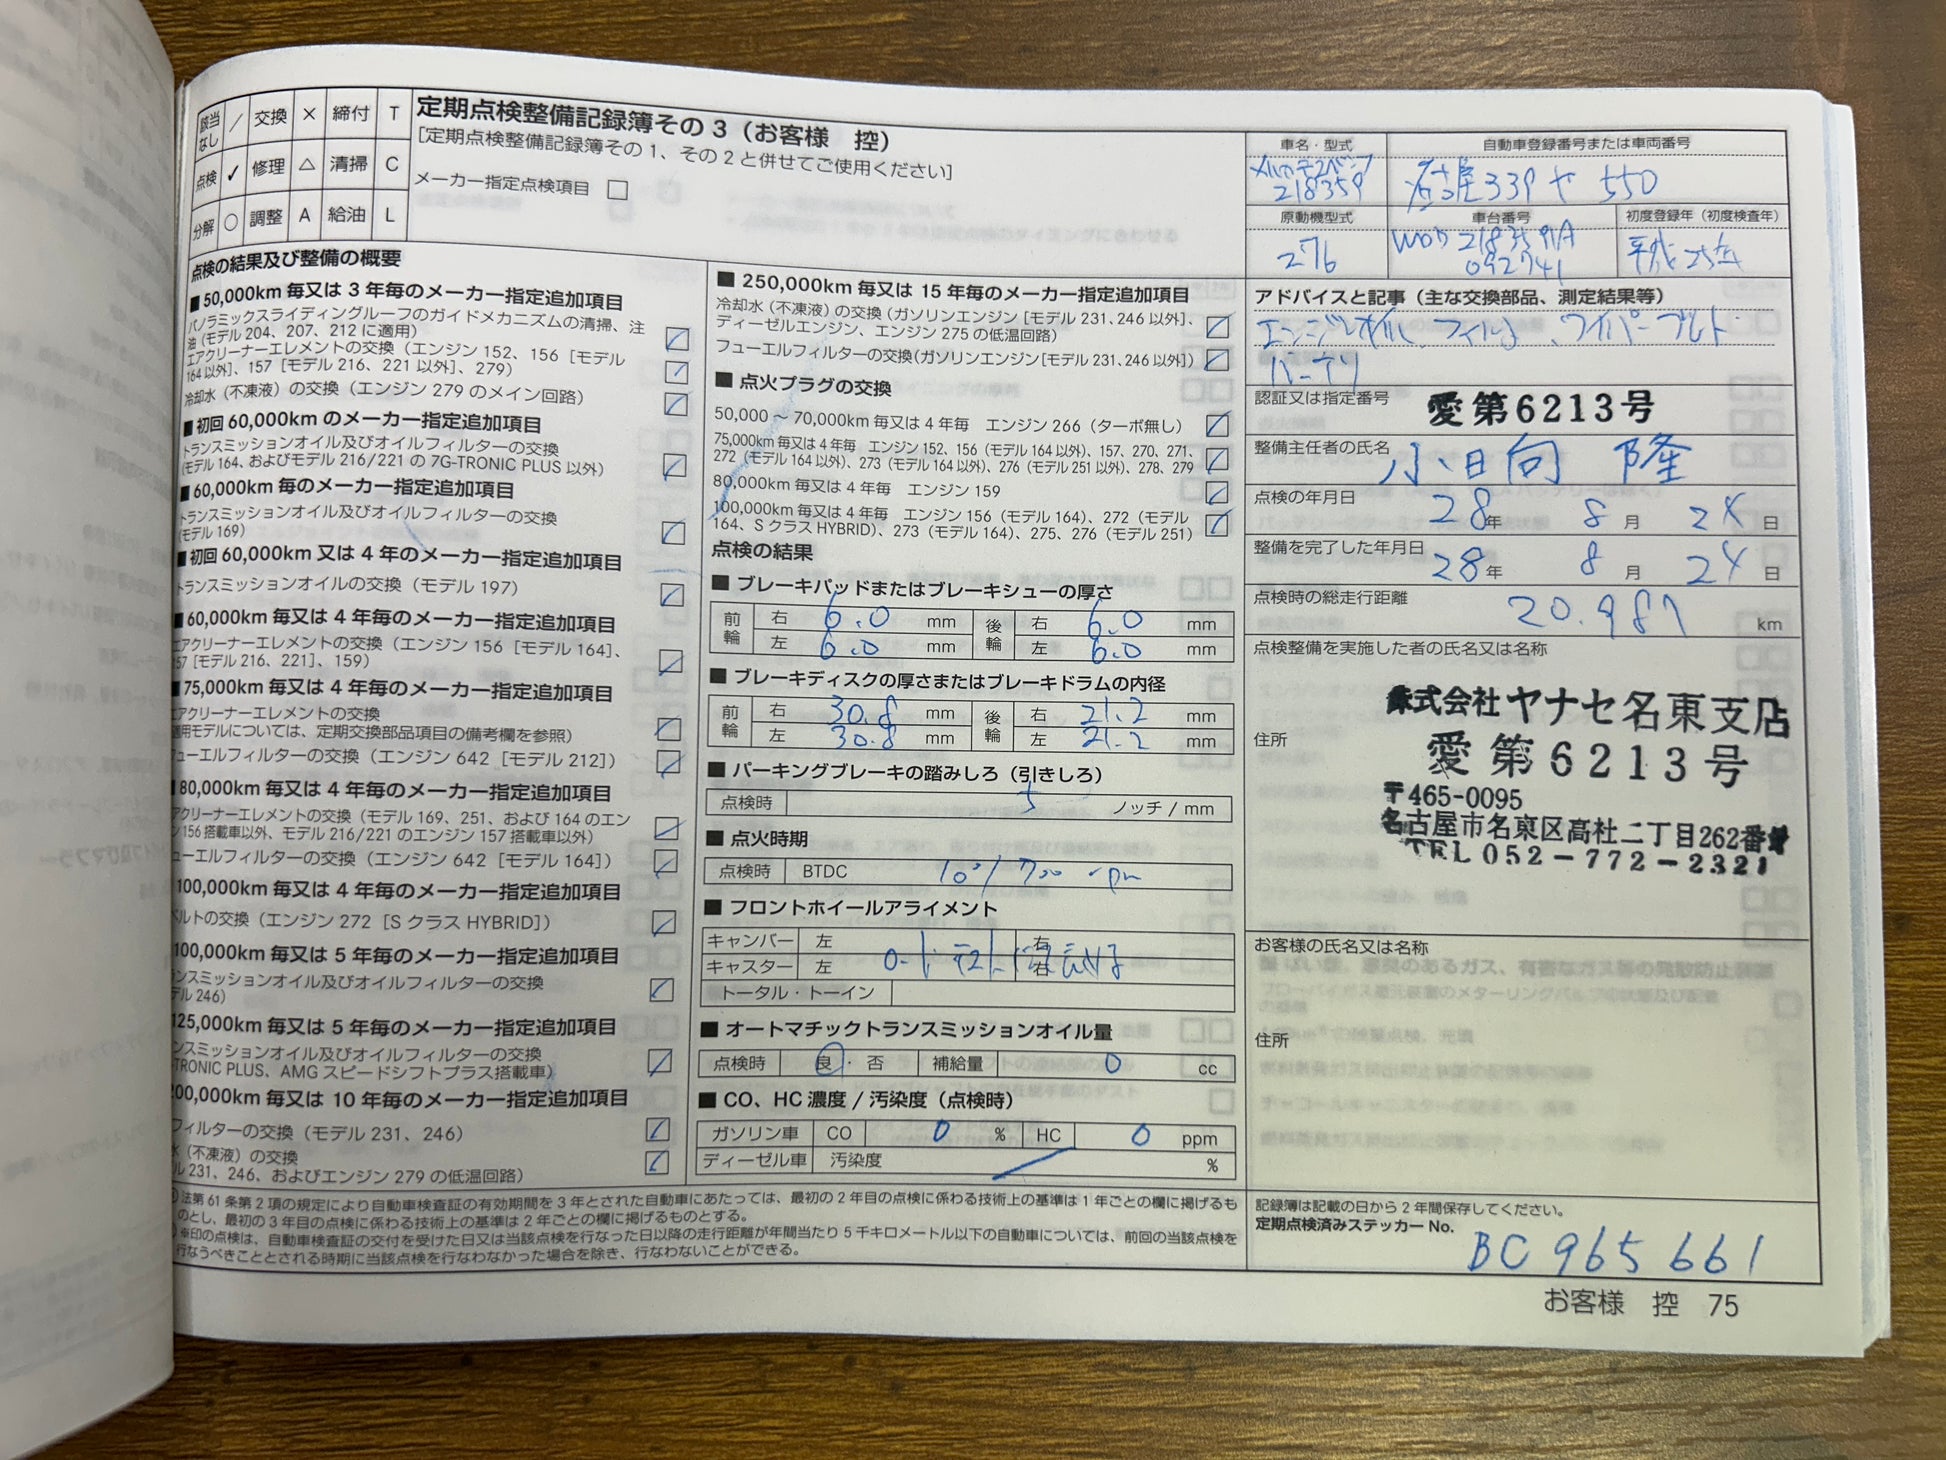 該当なし / 交換 × 締付 T
点検 ✓ 修理 △ 清掃 C
分解 ○ 調整 A 給油 L
定期点検整備記録簿その3（お客様 控）
[定期点検整備記録簿その1、その2と併せてご使用ください]
メーカー指定点検項目 □
点検の結果及び整備の概要
■50,000km毎又は3年毎のメーカー指定追加項目
パノラミックスライディングルーフのガイドメカニズムの清掃、注
油（モデル204、207、212に適用）
エアクリーナーエレメントの交換（エンジン152、156［モデル
164以外］、157［モデル216、221以外］、279）
冷却水（不凍液）の交換（エンジン279のメイン回路）
■初回60,000kmのメーカー指定追加項目
トランスミッションオイル及びオイルフィルターの交換
（モデル164、およびモデル216/221の7G-TRONIC PLUS以外）
■60,000km毎のメーカー指定追加項目
トランスミッションオイル及びオイルフィルターの交換
（モデル169）
■初回60,000km又は4年のメーカー指定追加項目
トランスミッションオイルの交換（モデル197）
■60,000km毎又は4年毎のメーカー指定追加項目
エアクリーナーエレメントの交換（エンジン156［モデル164］、
157［モデル216、221］、159）
■75,000km毎又は4年毎のメーカー指定追加項目
エアクリーナーエレメントの交換
用モデルについては、定期交換部品項目の備考欄を参照）
フューエルフィルターの交換（エンジン642［モデル212］）
■80,000km毎又は4年毎のメーカー指定追加項目
アクリーナーエレメントの交換（モデル169、251、および164のエン
ン156搭載車以外、モデル216/221のエンジン157搭載車以外）
ューエルフィルターの交換（エンジン642［モデル164］）
100,000km毎又は4年毎のメーカー指定追加項目
ベルトの交換（エンジン272［SクラスHYBRID］）
100,000km毎又は5年毎のメーカー指定追加項目
ンスミッションオイル及びオイルフィルターの交換
デル246）
125,000km毎又は5年毎のメーカー指定追加項目
ンスミッションオイル及びオイルフィルターの交換
-TRONIC PLUS、AMGスピードシフトプラス搭載車）
200,000km毎又は10年毎のメーカー指定追加項目
フィルターの交換（モデル231、246）
水（不凍液）の交換
ル231、246、およびエンジン279の低温回路）
■250,000km毎又は15年毎のメーカー指定追加項目
冷却水（不凍液）の交換（ガソリンエンジン［モデル231、246以外］、
ディーゼルエンジン、エンジン275の低温回路）
フューエルフィルターの交換（ガソリンエンジン［モデル231、246以外］）
■点火プラグの交換
50,000～70,000km毎又は4年毎 エンジン266（ターボ無し）
75,000km毎又は4年毎 エンジン152、156（モデル164以外）、157、270、271、
272（モデル164以外）、273（モデル164以外）、276（モデル251以外）、278、279
80,000km毎又は4年毎 エンジン159
100,000km毎又は4年毎 エンジン156（モデル164）、272（モデル
164、SクラスHYBRID）、273（モデル164）、275、276（モデル251）
点検の結果
■ブレーキパッドまたはブレーキシューの厚さ
前輪 右 6.0 mm 後輪 右 6.0 mm
左 6.0 mm 左 6.0 mm
■ブレーキディスクの厚さまたはブレーキドラムの内径
前輪 右 30.8 mm 後輪 右 21.2 mm
左 30.8 mm 左 21.2 mm
■パーキングブレーキの踏みしろ（引きしろ）
点検時 5 ノッチ / mm
■点火時期
点検時 BTDC 10°/700 rpm
■フロントホイールアライメント
キャンバー 左 右
キャスター 左 右
トータル・トーイン
■オートマチックトランスミッションオイル量
点検時 良・否 補給量 0 cc
■CO、HC濃度 / 汚染度（点検時）
ガソリン車 CO 0 % HC 0 ppm
ディーゼル車 汚染度 %
法第61条第2項の規定により自動車検査証の有効期間を3年とされた自動車にあたっては、最初の2年目の点検に係わる技術上の基準は1年ごとの欄に掲げるも
のとし、最初の3年目の点検に係わる技術上の基準は2年ごとの欄に掲げるものとする。
※印の点検は、自動車検査証の交付を受けた日又は当該点検を行なった日以降の走行距離が年間当たり5千キロメートル以下の自動車については、前回の当該点検を
行なうべきこととされる時期に当該点検を行なわなかった場合を除き、行なわないことができる。
車名・型式 自動車登録番号または車両番号
メルセデスベンツ
218359 名古屋 339 や 550
原動機型式 車台番号 初度登録年（初度検査年）
276 WDD 218359 1A
092741 平成25年
アドバイスと記事（主な交換部品、測定結果等）
エンジンオイル、フィルター、ワイパーブレード
バッテリ
認証又は指定番号 愛第6213号
整備主任者の氏名 小日向 隆
点検の年月日 28年 8月 24日
整備を完了した年月日 28年 8月 24日
点検時の総走行距離 20.987 km
点検整備を実施した者の氏名又は名称
株式会社ヤナセ名東支店
住所 愛第6213号
〒465-0095
名古屋市名東区高社二丁目262番
TEL 052-772-2321
お客様の氏名又は名称
住所
記録簿は記載の日から2年間保存してください。
定期点検済みステッカーNo.
BC 965661
お客様 控 75